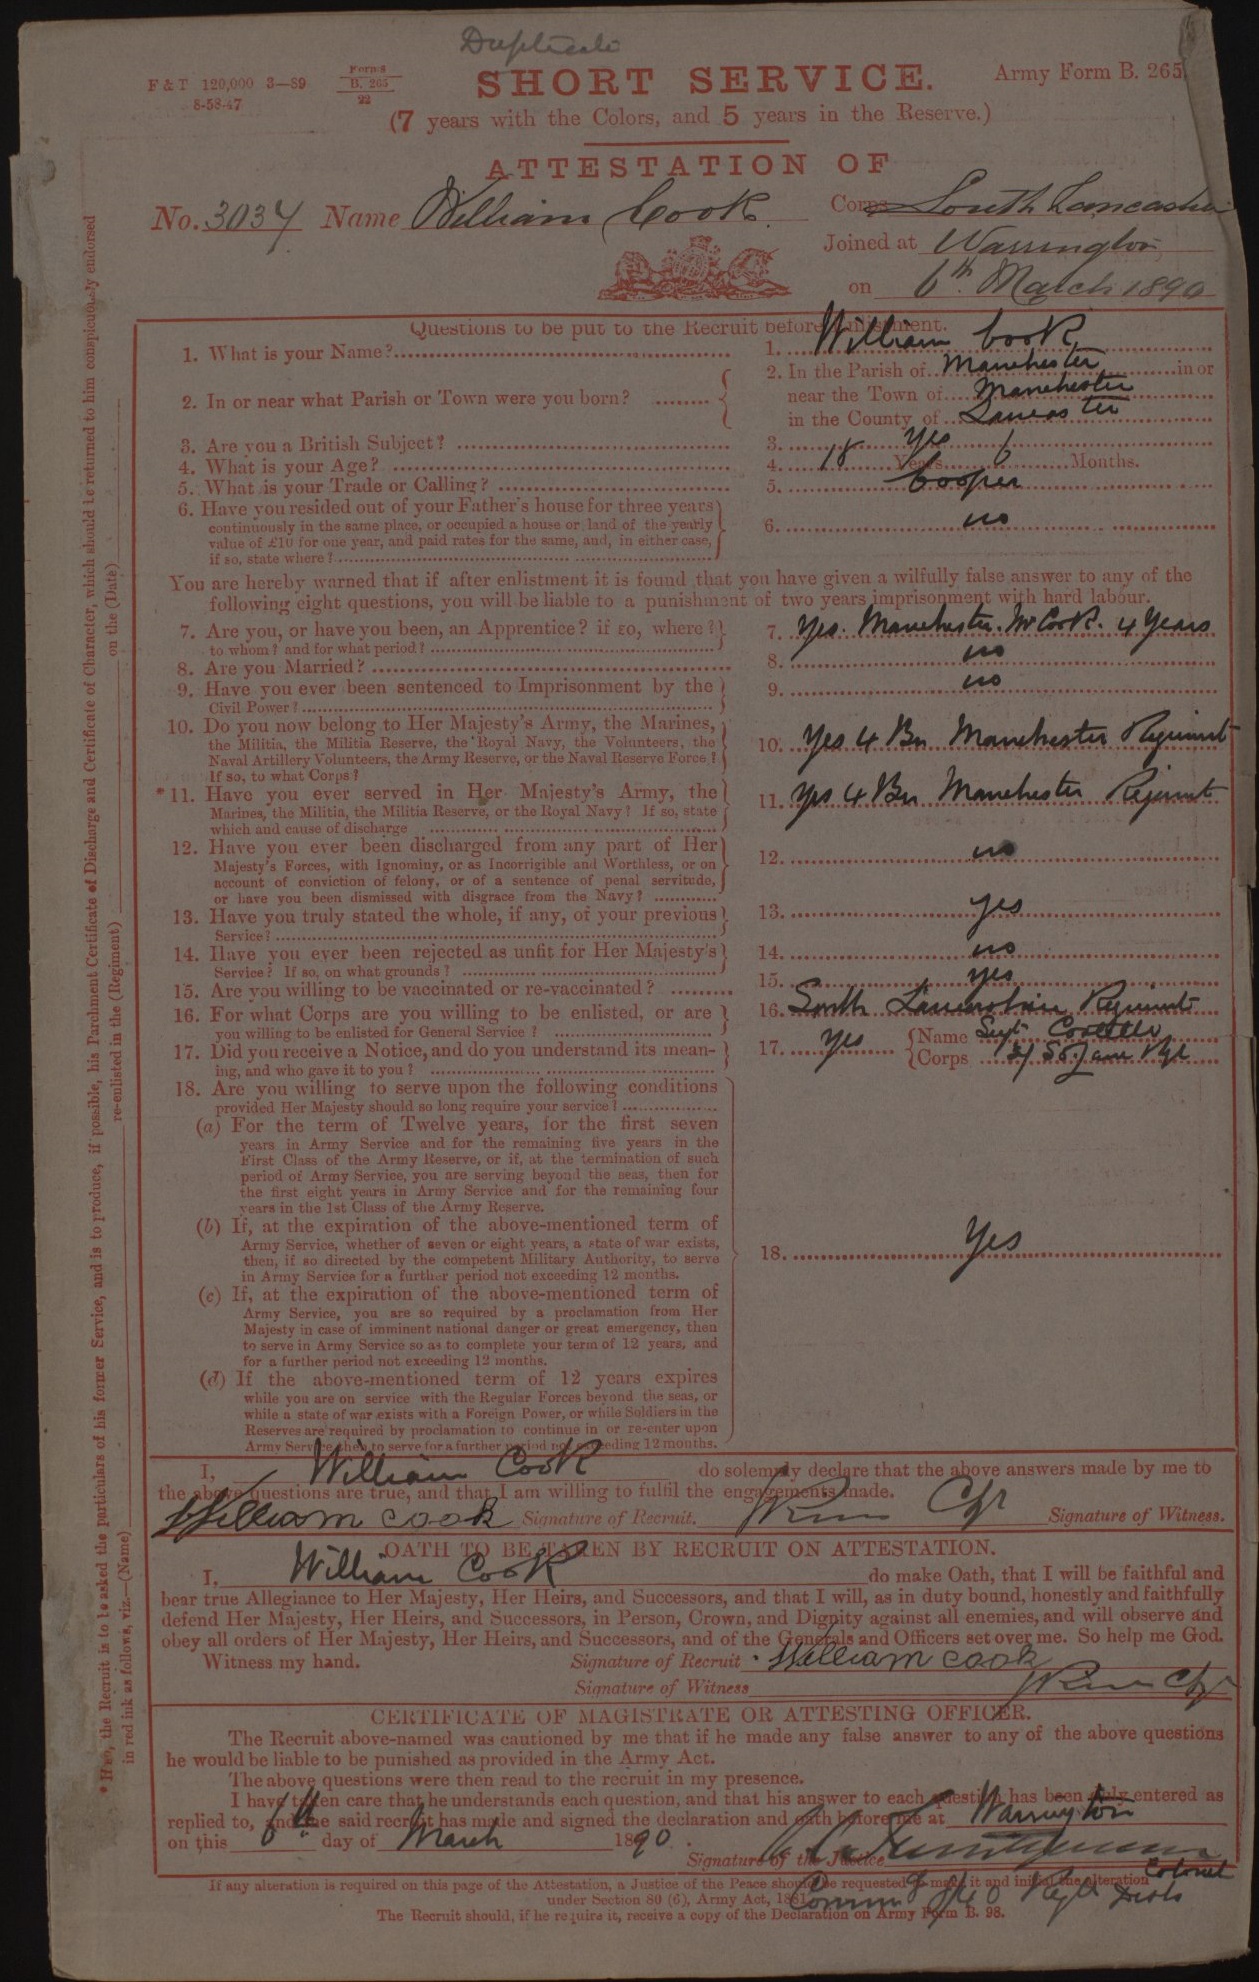 Duplicate
F & T 120,000 3—89
8-58-47
Forms
B. 265
22
SHORT SERVICE.
Army Form B. 265
(7 years with the Colors, and 5 years in the Reserve.)
ATTESTATION OF
No. 3034 Name William Cook Corps South Lancashire
Joined at Warrington
on 6th March 1890
Questions to be put to the Recruit before Enlistment.
1. What is your Name? 1. William Cook
2. In or near what Parish or Town were you born? 2. In the Parish of Manchester in or
near the Town of Manchester
in the County of Lancaster
3. Are you a British Subject? 3. Yes
4. What is your Age? 4. 18 Years 6 Months.
5. What is your Trade or Calling? 5. Cooper
6. Have you resided out of your Father's house for three years
continuously in the same place, or occupied a house or land of the yearly
value of £10 for one year, and paid rates for the same, and, in either case,
if so, state where? 6. no
You are hereby warned that if after enlistment it is found that you have given a wilfully false answer to any of the
following eight questions, you will be liable to a punishment of two years imprisonment with hard labour.
7. Are you, or have you been, an Apprentice? if so, where?
to whom? and for what period? 7. Yes. Manchester. Mr Cook. 4 Years
8. Are you Married? 8. no
9. Have you ever been sentenced to Imprisonment by the
Civil Power? 9. no
10. Do you now belong to Her Majesty's Army, the Marines,
the Militia, the Militia Reserve, the Royal Navy, the Volunteers, the
Naval Artillery Volunteers, the Army Reserve, or the Naval Reserve Force?
If so, to what Corps? 10. Yes 4 Bn Manchester Regiment
* 11. Have you ever served in Her Majesty's Army, the
Marines, the Militia, the Militia Reserve, or the Royal Navy? If so, state
which and cause of discharge 11. Yes 4 Bn Manchester Regiment
12. Have you ever been discharged from any part of Her
Majesty's Forces, with Ignominy, or as Incorrigible and Worthless, or on
account of conviction of felony, or of a sentence of penal servitude,
or have you been dismissed with disgrace from the Navy? 12. no
13. Have you truly stated the whole, if any, of your previous
Service? 13. yes
14. Have you ever been rejected as unfit for Her Majesty's
Service? If so, on what grounds? 14. no
15. Are you willing to be vaccinated or re-vaccinated? 15. yes
16. For what Corps are you willing to be enlisted, or are
you willing to be enlisted for General Service? 16. South Lancashire Regiment
17. Did you receive a Notice, and do you understand its mean-
ing, and who gave it to you? 17. Yes Name Sergt
Corps
18. Are you willing to serve upon the following conditions
provided Her Majesty should so long require your service?
(a) For the term of Twelve years, for the first seven
years in Army Service and for the remaining five years in the
First Class of the Army Reserve, or if, at the termination of such
period of Army Service, you are serving beyond the seas, then for
the first eight years in Army Service and for the remaining four
years in the 1st Class of the Army Reserve.
(b) If, at the expiration of the above-mentioned term of
Army Service, whether of seven or eight years, a state of war exists,
then, if so directed by the competent Military Authority, to serve
in Army Service for a further period not exceeding 12 months.
18. Yes
(c) If, at the expiration of the above-mentioned term of
Army Service, you are so required by a proclamation from Her
Majesty in case of imminent national danger or great emergency, then
to serve in Army Service so as to complete your term of 12 years, and
for a further period not exceeding 12 months.
(d) If the above-mentioned term of 12 years expires
while you are on service with the Regular Forces beyond the seas, or
while a state of war exists with a Foreign Power, or while Soldiers in the
Reserves are required by proclamation to continue in or re-enter upon
Army Service then to serve for a further period not exceeding 12 months.
I, William Cook do solemnly declare that the above answers made by me to
the above questions are true, and that I am willing to fulfil the engagements made.
William Cook Signature of Recruit. Signature of Witness.
OATH TO BE TAKEN BY RECRUIT ON ATTESTATION.
I, William Cook do make Oath, that I will be faithful and
bear true Allegiance to Her Majesty, Her Heirs, and Successors, and that I will, as in duty bound, honestly and faithfully
defend Her Majesty, Her Heirs, and Successors, in Person, Crown, and Dignity against all enemies, and will observe and
obey all orders of Her Majesty, Her Heirs, and Successors, and of the Generals and Officers set over me. So help me God.
Witness my hand. Signature of Recruit William Cook
Signature of Witness
CERTIFICATE OF MAGISTRATE OR ATTESTING OFFICER.
The Recruit above-named was cautioned by me that if he made any false answer to any of the above questions
he would be liable to be punished as provided in the Army Act.
The above questions were then read to the recruit in my presence.
I have taken care that he understands each question, and that his answer to each question has been duly entered as
replied to, and the said recruit has made and signed the declaration and oath before me at Warrington
on this 6th day of March 1890.
Signature of the Justice
Colonel
If any alteration is required on this page of the Attestation, a Justice of the Peace should be requested to make it and initial the alteration
under Section 80 (6), Army Act, 1881.
The Recruit should, if he require it, receive a copy of the Declaration on Army Form B. 98.
* If so, the Recruit is to be asked the particulars of his former Service, and is to produce, if possible, his Parchment Certificate of Discharge and Certificate of Character, which should be returned to him conspicuously endorsed
in red ink as follows, viz.—(Name) re-enlisted in the (Regiment) on the (Date)